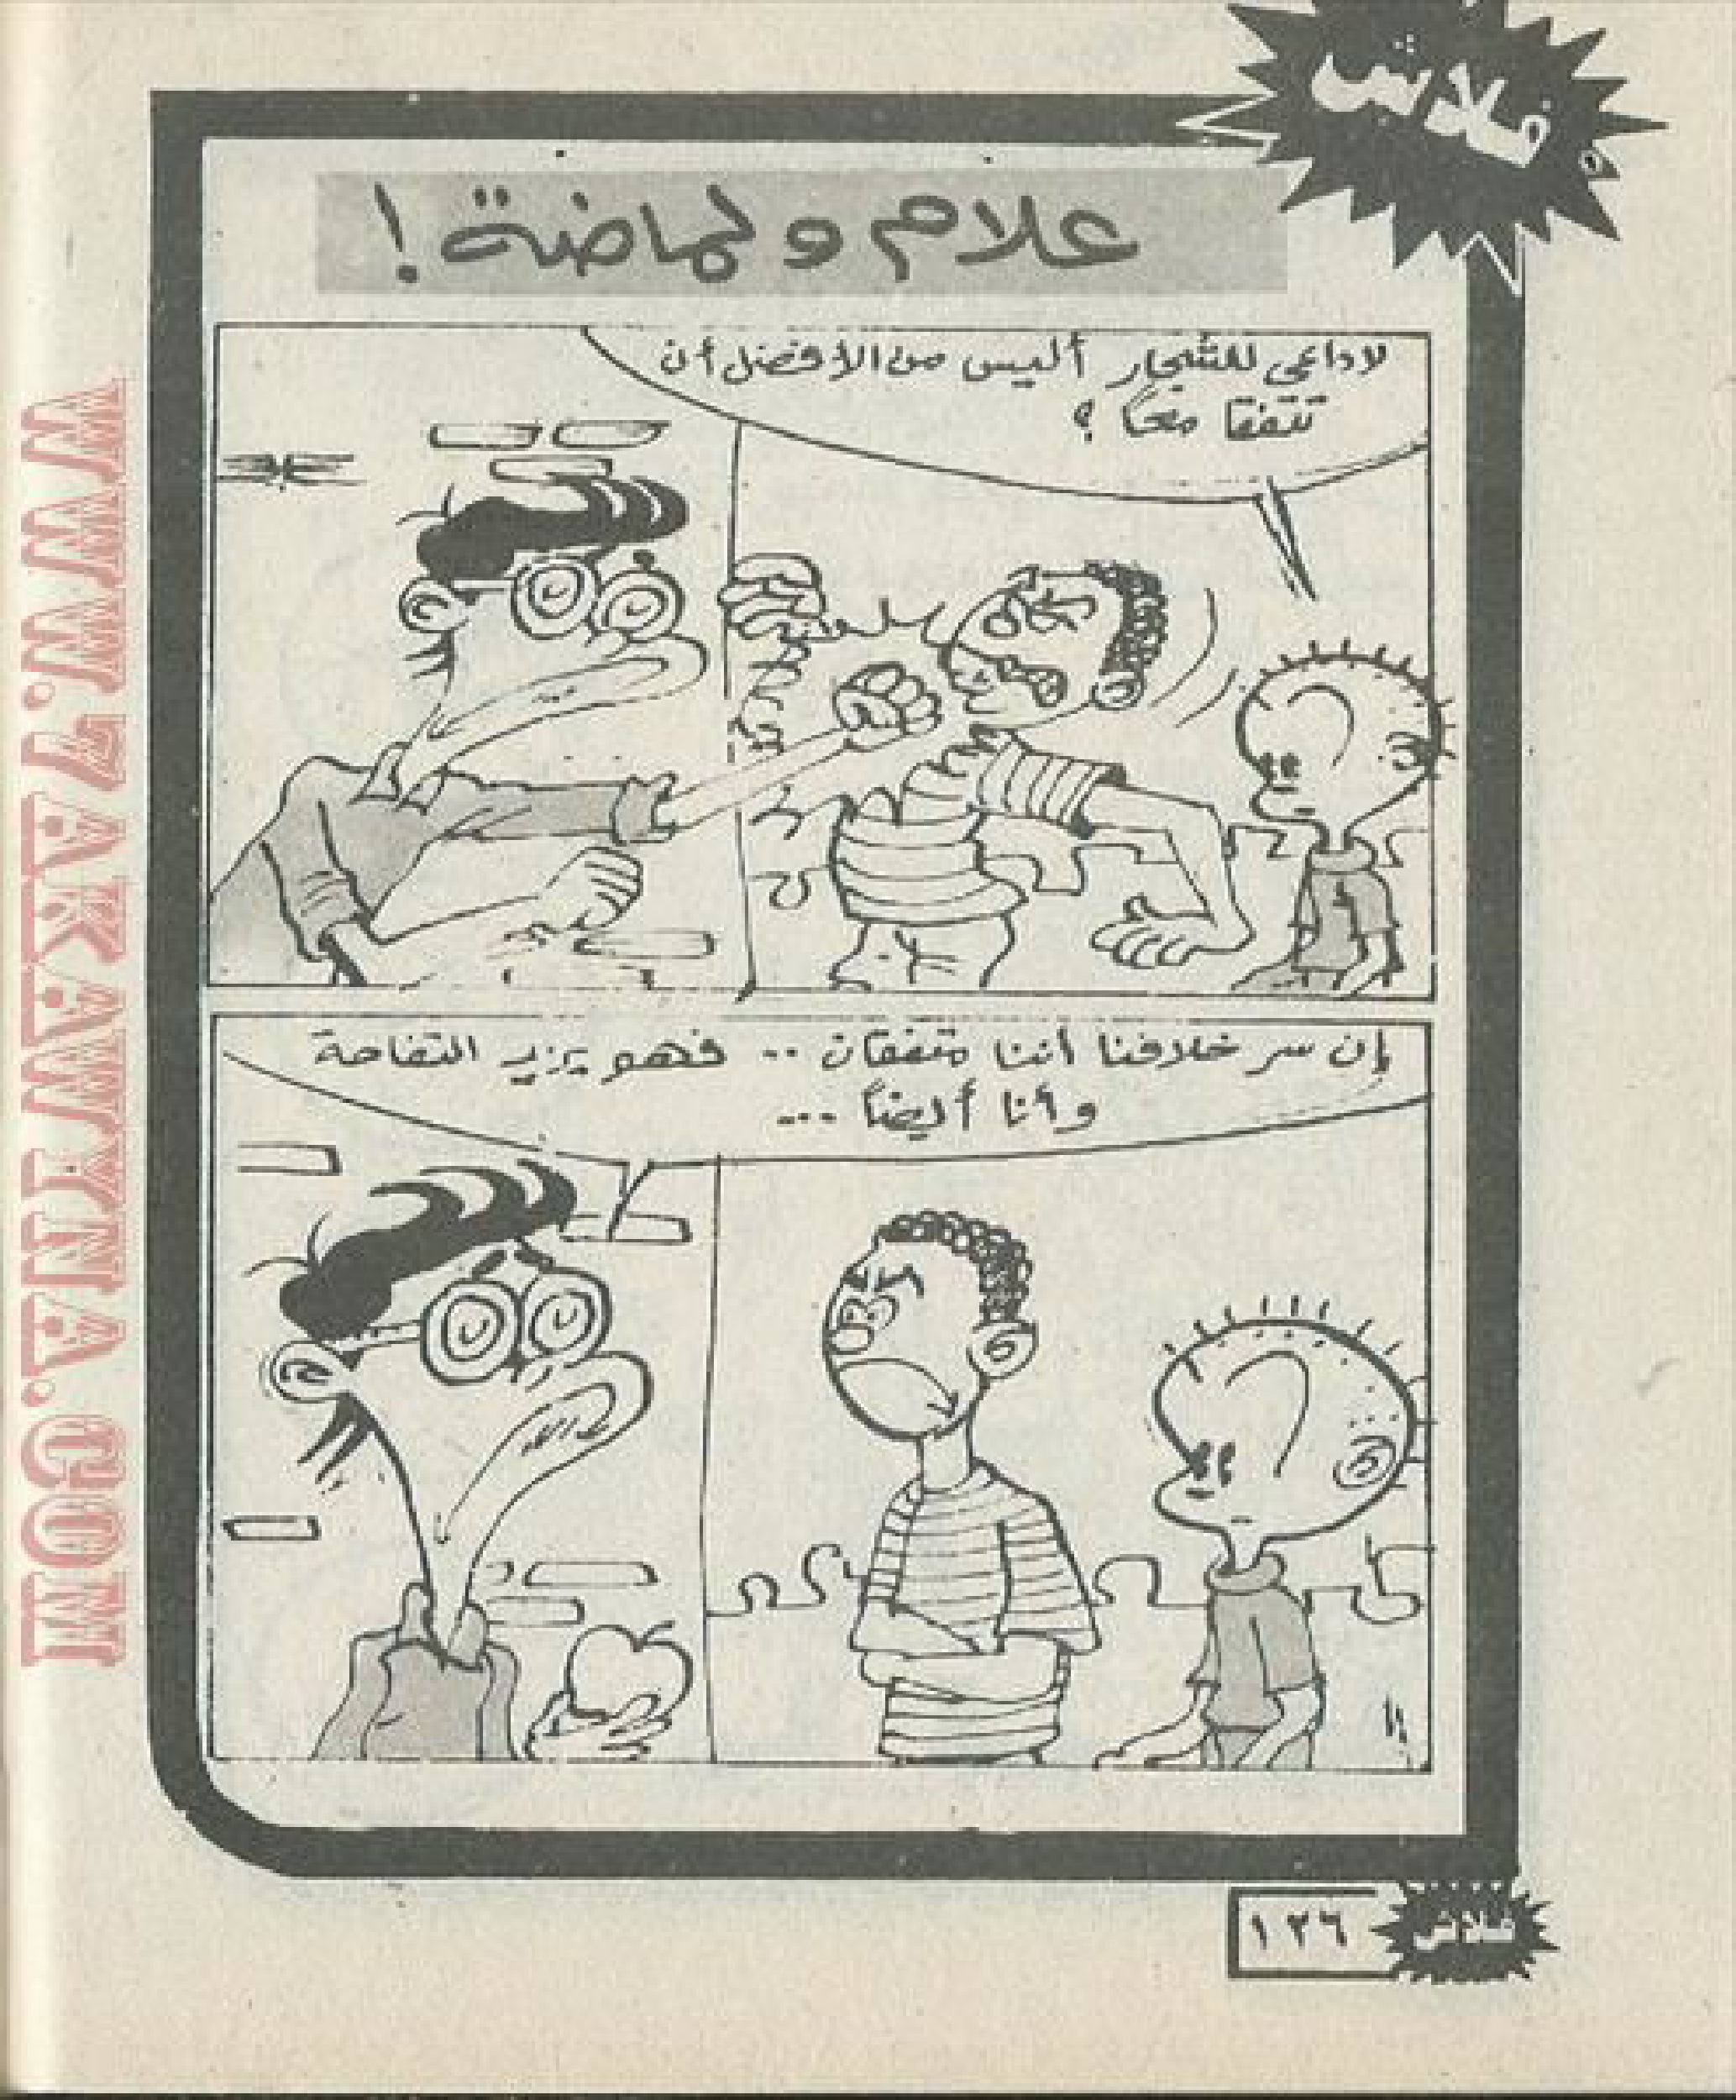 فلاش
علام ولماضة!
لا داعي للشجار أليس من الأفضل أن
تتفقا معاً ؟
إن سر خلافنا أننا متفقان .. فهو يريد التفاحة
وأنا أيضاً ...
١٢٦
فلاش
WWW.7AKAWATINA.COM